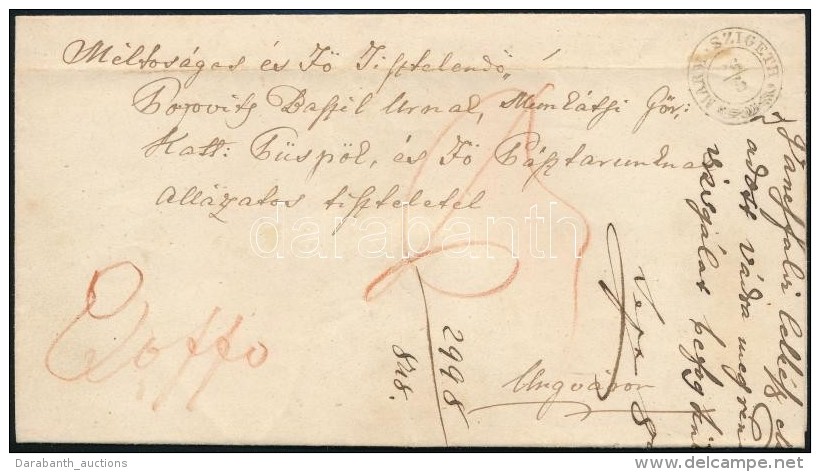 Méltoságos és Fö Tisztelendö
Popovits Baszil Urnak, Munkátsi Gör:
Kath: Püspök, és Fö Pásztarunknak
allázatos tisztelettel
MARM. SZIGETH
Ex offo
2998
848.
Ungváron
adott vádra
vizsgálat
darabanth
Darabanth_auctions
delcampe.net